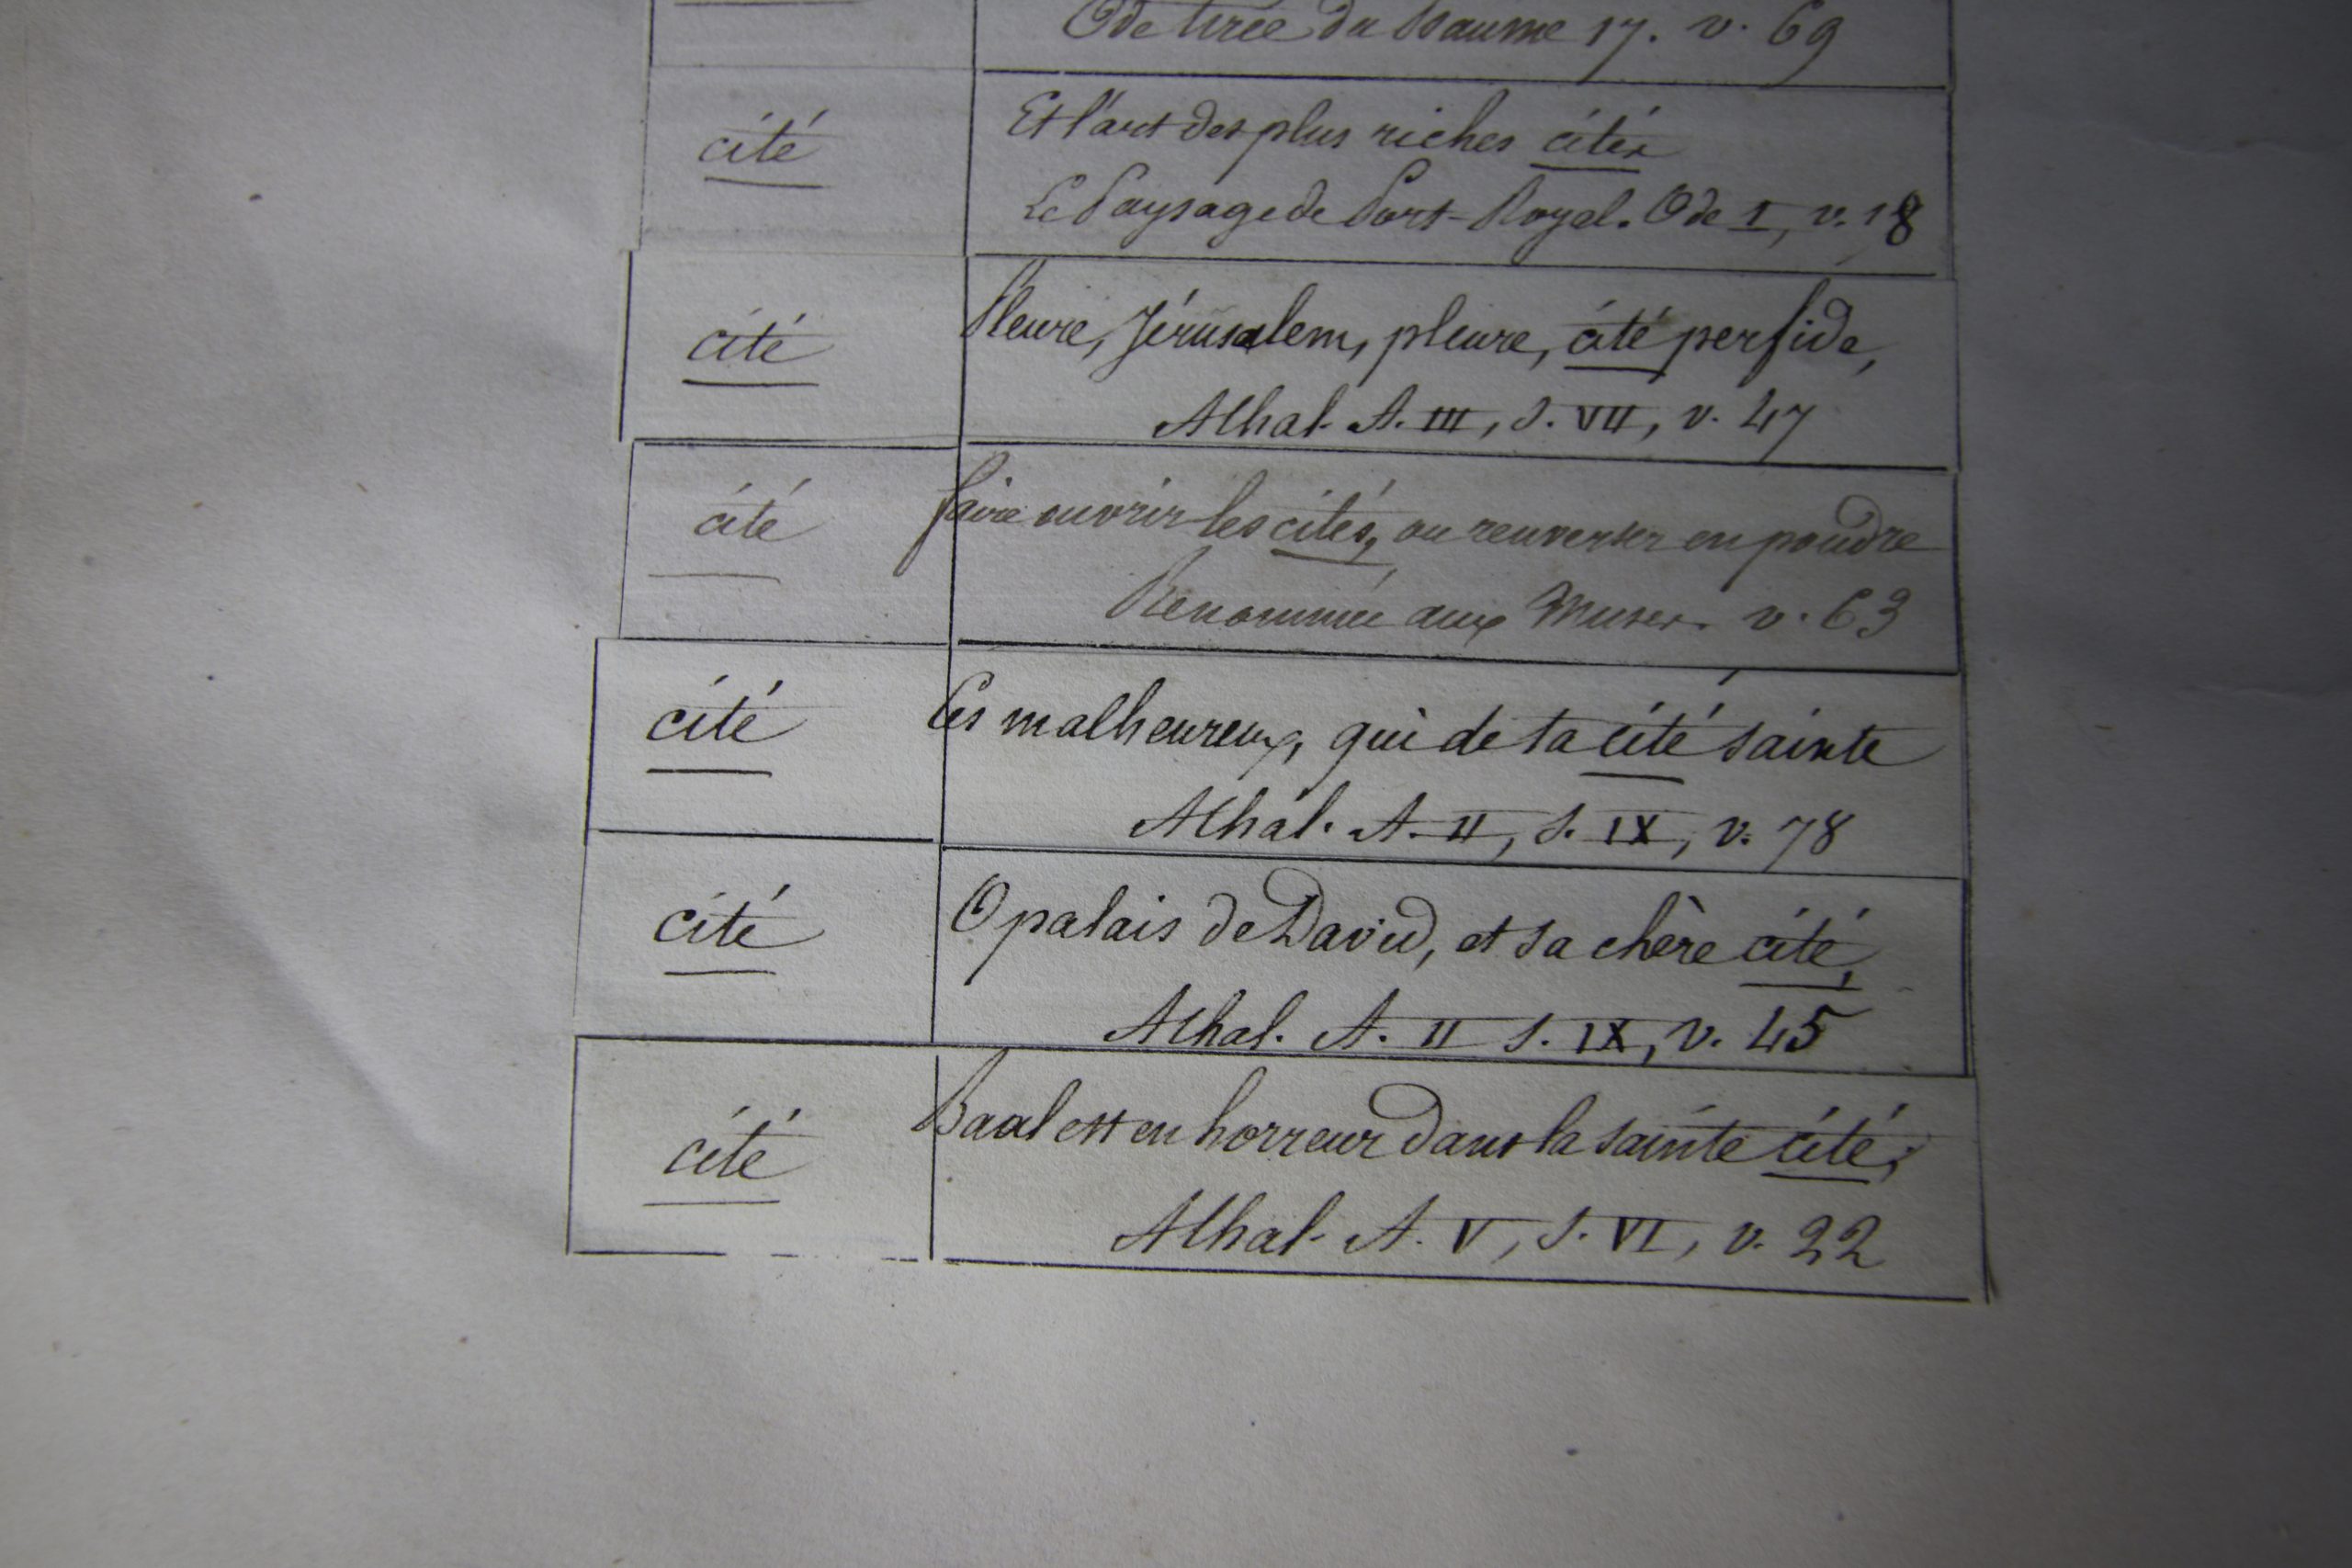 Ode tirée du Psaume 17. v. 69
cité
Et l'art des plus riches cités
Le Paysage de Port-Royal. Ode I, v. 18
cité
Pleure, Jérusalem, pleure, cité perfide,
Athal. A. III, S. VII, v. 47
cité
faire ouvrir les cités, ou renverser en poudre
Renommée aux Muses. v. 63
cité
Ces malheureux, qui de ta cité sainte
Athal. A. II, S. IX, v. 78
cité
O palais de David, et sa chère cité,
Athal. A. II S. IX, v. 45
cité
Baal est en horreur dans la sainte cité;
Athal. A. V, S. VI, v. 22